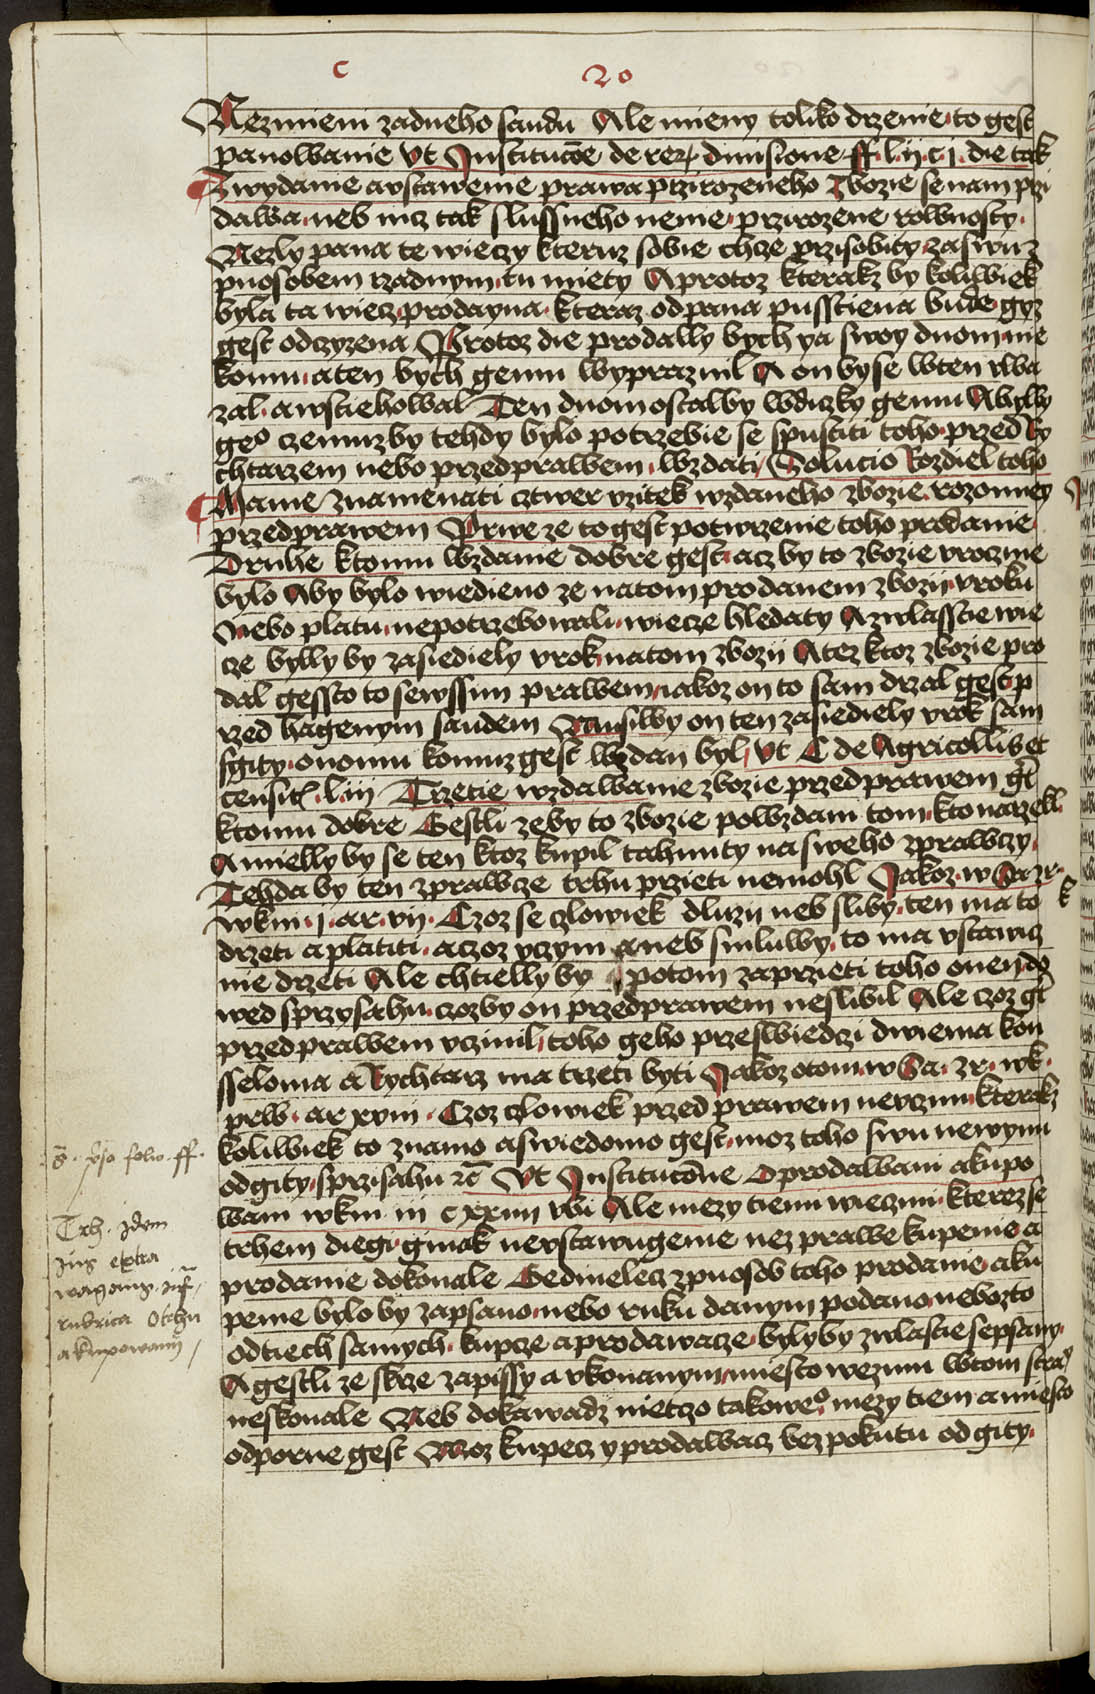 C 20
Nezmiem zadneho saudu Ale mieny toliko drzenie to gest
panowanie Vt Institucōe de rerz diuisione ff l ij c j die tak
Zwydanie a vstawenie prawa przirozeneho Zbozie se nam przi
dawa neb nicz tak slussneho nenie przirozene rownosty
Nezly pana te wieczy kteruz sobie chcze przisobity za swuz
puosobem rzadnym tu miety A protoz kterakz by koliwiek
byla ta wiecz prodayna kteraz od pana pusstiena bude gyz
gest odczyzena Protoz die prodally bych ya swoy duom nie
komu a ten bych gemu wypraznil A on by se w ten vwa
zal a wstiehowal Ten duom ostal by wdiczky gemu A bylly
geo czemuz by tehdy bylo potrzebie se spustiti toho przed Ry
chtarzem nebo przed prawem wzdati Solucio Rozdiel toho
Mame znamenati cztwer vzitek wzdaneho zbozie rozomney
przed prawem Prwe ze to gest potwrzenie toho prodanie
Druhe k tomu wzdanie dobre gest acz by to zbozie vroczne
bylo Aby bylo wiedieno ze na tom prodanem zbozii vroku
Nebo platu nepotrzebowali wiecze hledaty A zwlasstie wie
cze bylly by zasiediely vrok na tom zbozii A tez ktoz zbozie pro
dal gessto to se wssim prawem iakoz on to sam drzal gest p
rzed hagenym saudem Musil by on ten zasiediely vrok sam
sgity onomu komuz gest wzdan byl Vt C de Agricollis et
censit l iij Trzetie wzdawanie zbozie przed prawem gt
k tomu dobre Gestli ze by to zbozie po wzdani tom kto narzekl
A mielly by se ten ktoz kupil tahnuty na sweho zprawczy
Tehda by ten zprawcze trhu przieti nemohl Jakoz w Sa zr
w km j ar vij Czoz se czlowiek dluzii neb sliby ten ma to k
drzeti a platiti a czoz vczym a neb smluwy to ma vstawicz
nie drzeti Ale chtielly by potom zaprzieti toho onen do
wed s przysahu czoz by on przed prawem neslibil Ale czoz gt
przed prawem vczinil toho geho przeswiedczi dwiema kon
sseloma a Rychtarz ma trzeti byti Jakoz o tom w Sa zr wk
prw ar xviij Czoz czlowiek przed prawem nevczini kterakz
koliwiek to znamo a swiedomo gest moz toho swu newynu
odgity s przisahu zc Vt Institucōne O prodawani a kupo
wani w km iii c xxiiij vbi Ale mezy tiemi wieczmi kterez se
trhem diegi ginak nevstawugeme nez prawe kupenie a
prodanie dokonale Gedine lecz zpuosob toho prodanie a ku
penie bylo by zapsano nebo ruku danym podano nebozto
od tiech samych kupcze a prodawacze byly by zwlastie sepsany
A gestli ze skrze zapissy a vkonanym miesto wezmu w tom stray
neskonale Neb dokawadz nietczo takoweo mezy tiem a miesto
odporne gest Moz kupecz y prodawacz bez pokutu odgity
folio ff
Trh Idem
Ius extra
rubrica O trhu
a kupowanij